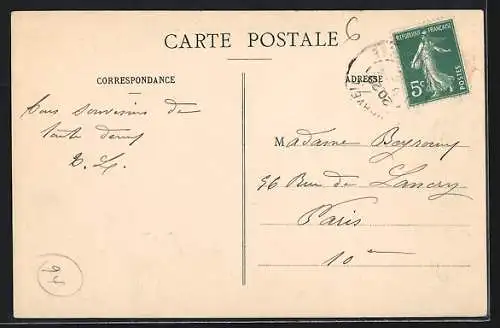 CARTE POSTALE
6
CORRESPONDANCE
ADRESSE
REPUBLIQUE FRANÇAISE
5c
POSTES
20
Bons souvenirs de
toute
Madame Beyrouny
56 Rue de Lancry
Paris
10e
94